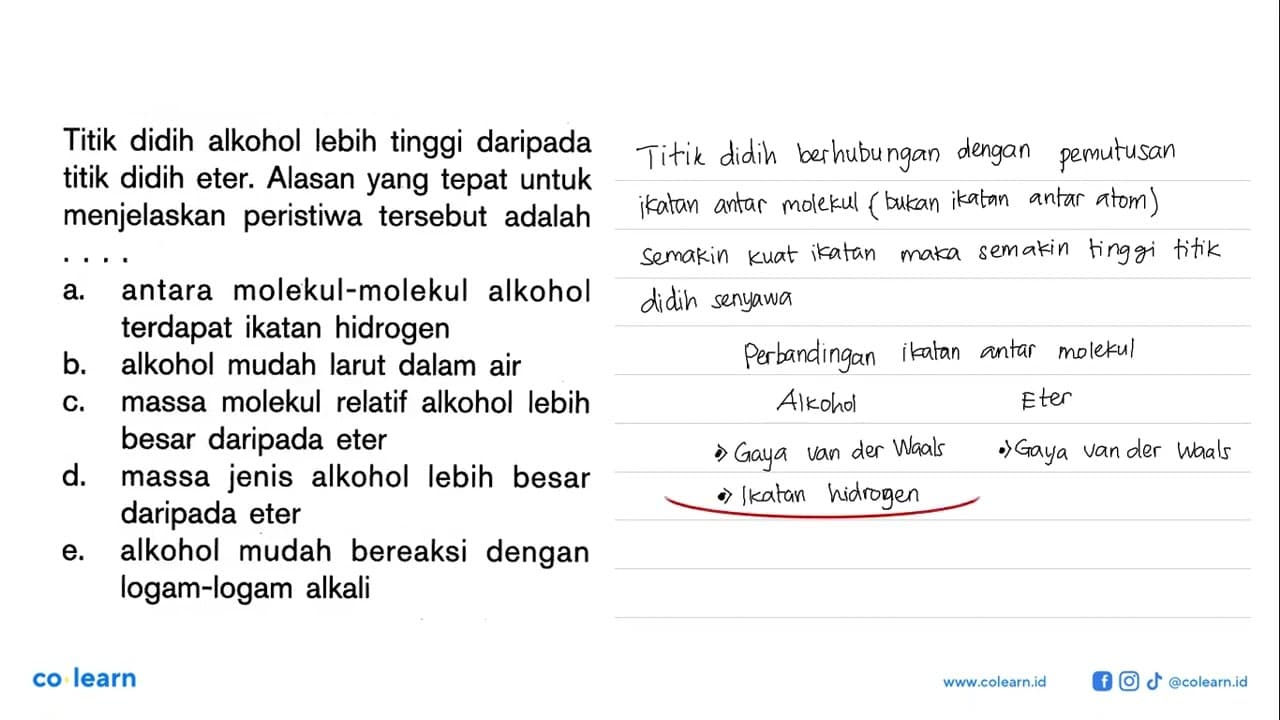 Titik didih alkohol lebih tinggi daripada
titik didih eter. Alasan yang tepat untuk
menjelaskan peristiwa tersebut adalah
. . . .
a. antara molekul-molekul alkohol
terdapat ikatan hidrogen
b. alkohol mudah larut dalam air
c. massa molekul relatif alkohol lebih
besar daripada eter
d. massa jenis alkohol lebih besar
daripada eter
e. alkohol mudah bereaksi dengan
logam-logam alkali
Titik didih berhubungan dengan pemutusan
ikatan antar molekul (bukan ikatan antar atom)
Semakin kuat ikatan maka semakin tinggi titik
didih senyawa
Perbandingan ikatan antar molekul
Alkohol Eter
Gaya van der Waals Gaya van der Waals
Ikatan hidrogen
co learn
www.colearn.id @colearn.id